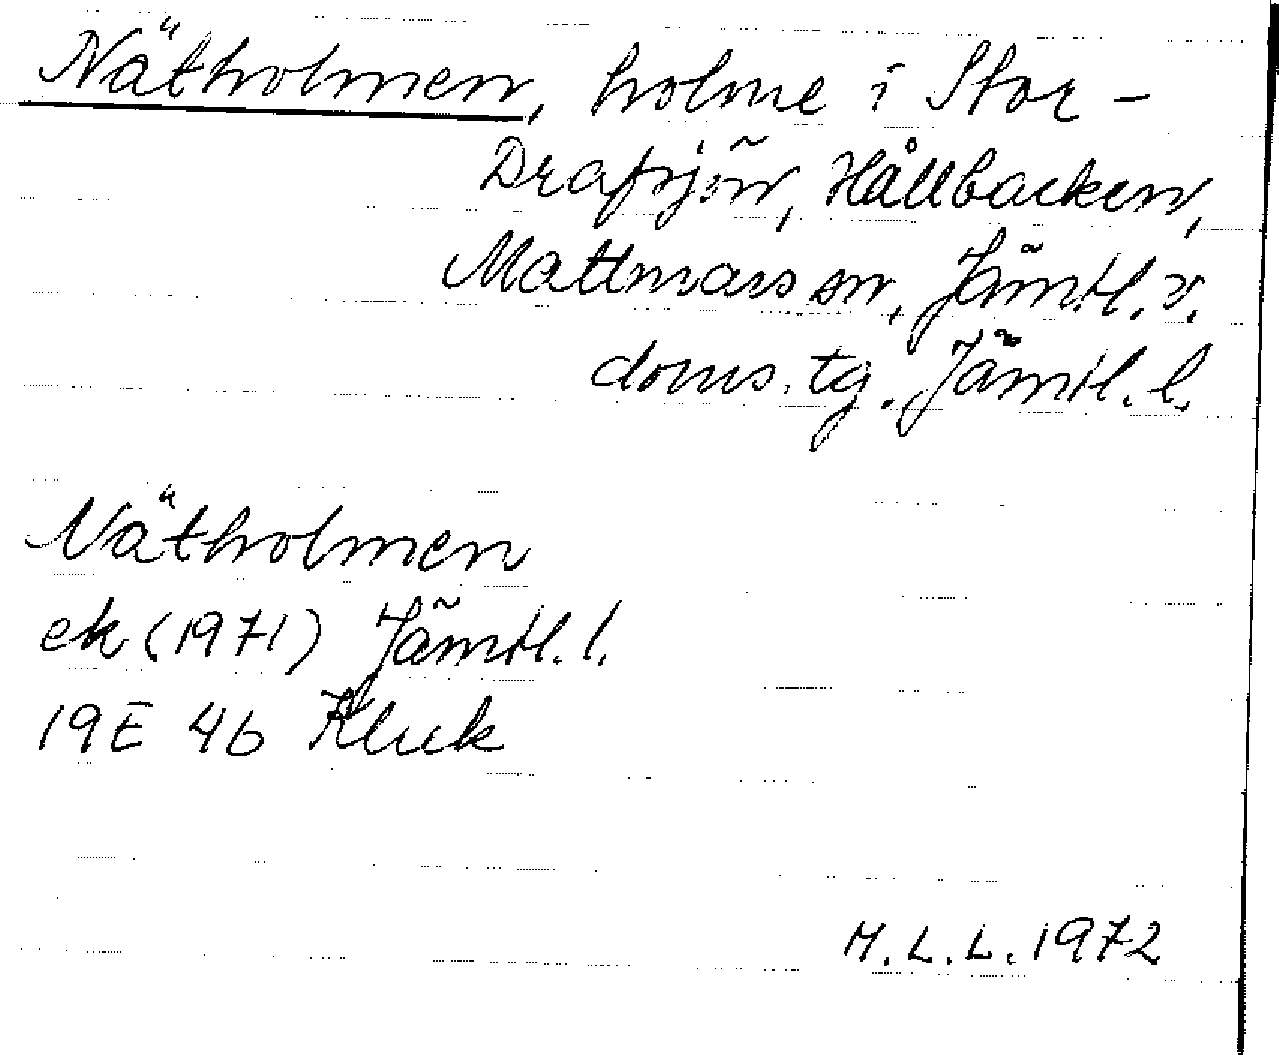 Nätholmen, holme i Stor-
Drafsjön, Hållbacken,
Mattmars sn, Jämtl. v.
doms. tg. Jämtl. l.
Nätholmen
ek (1971) Jämtl. l.
19E 4b Kluk
M.L.L. 1972